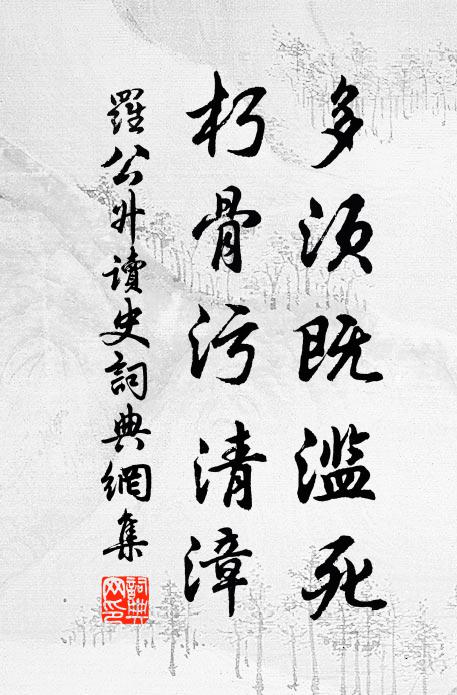 多须既滥死
朽骨污清漳
羅公升讀史詞典網集
詞典网印